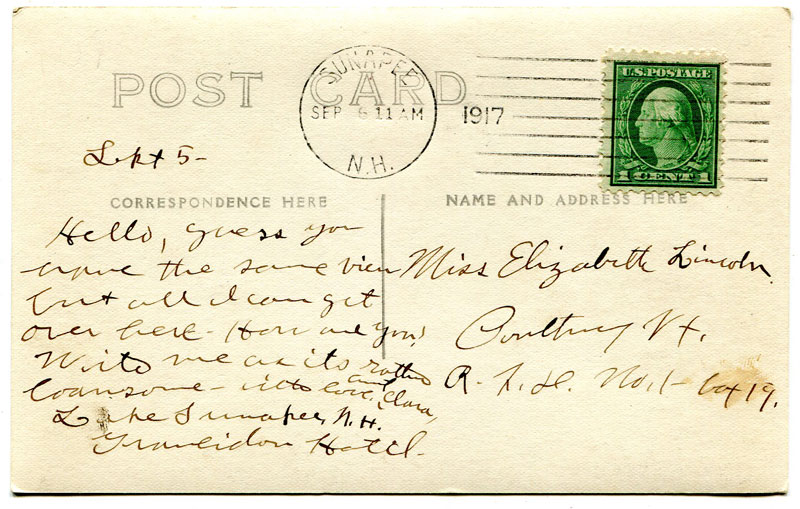 POST CARD
SUNAPEE
SEP 6 11 AM
1917
N.H.
U.S. POSTAGE
1 CENT 1
Sept 5-
CORRESPONDENCE HERE
NAME AND ADDRESS HERE
Hello, guess you
have the same view
but all I can get
over here - How are you?
Write me as its rather
loansome - with love and Clara,
Lake Sunapee, N.H.
Hotel.
Miss Elizabeth Lincoln.
Poultney Vt.
R. F. D. No. 1 - Box 19.